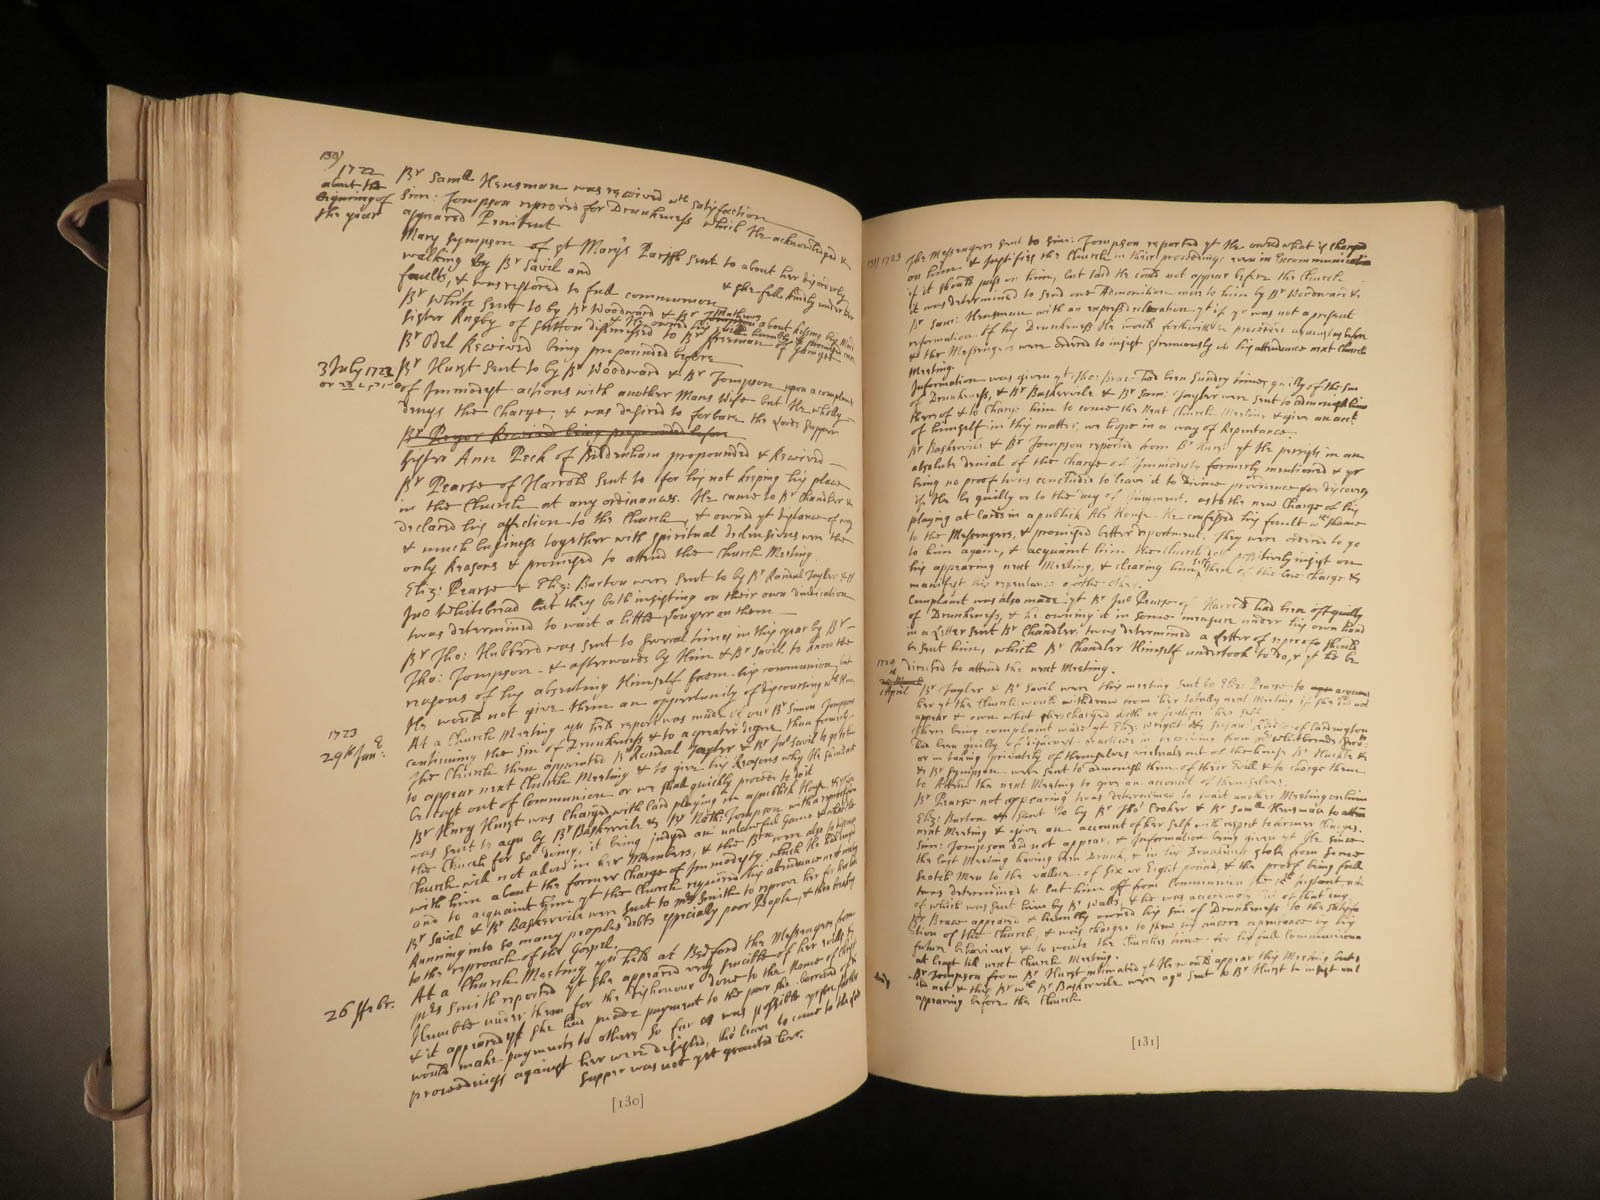 130)
1722
about the
beginning of
the year
Br Samll Hensman was received wth satisfaction
Sim: Tompson reproved for Drunkness which He acknowledged &
appeared Penitent
Mary Sympson of St Mary's Parish sent to about her disorderly
walking by Br Savil and & she fell kindly under her
faults, & was restored to full communion
Br White sent to by Br Woodward & Br Mathews about kissing his Maid
& He owned his humbly &
Sister Rugby of Sutton dismissed to Br Freeman of Gamgay
Br Odel Received being propounded before
3 July 1723
Br Hurst sent to by Br Woodward & Br Tompson upon a complaint
of Immodest actions with another Mans Wife but He wholly
denys the Charge, & was desired to forbare the Lords Supper
Br Received being propounded before
Sister Ann Peck of Biddenham propounded & Received
Br Pearse of Harrold sent to for his not keeping his place
in the Church at any ordinances. He came to Br Chandler &
declared his affection to the Church, & owned yt distance of way
& much business together with spiritual were the
only Reasons & promised to attend the Church Meeting
Eliz: Pearse & Eliz: Burton were sent to by Br Randal Tayler &
Jno Whitebread but they both insisting on their own vindication
twas determined to wait a little Longer on them
Br Tho: Hubberd was sent to several times in this year by Br
Tho: Tompson & afterwards by Him & Br Savil to know the
reasons of his absenting Himself from his communion, but
He would not give them an opportunity of discoursing wth Him
1723
29th Jan:
At a Church Meeting yn held report was made of our Br Simon Tompsons
continuing the Sin of Drunkness & to a greater degree than formerly
The Church then appointed Br Randal Tayler & Br Jno Savil to go to him
to appear next Church Meeting & to give his Reasons why He should not
be cast out of Communion or we shall quickly proceed to do it
Br Harry Hurst was Charged with Card playing in a publick House, & ys
was sent to agn by Br Baskervile & Br Nath: Tompson with a reproof from
the Church for so doing, it being judged an unlawful Game & what the
Church will not allow in her Members, & the Brn were also to discourse
with him about the former Charge of Immodesty which He had
and to acquaint him yt the Church required his attendance next
Br Savil & Br Baskervile were sent to Mrs Smith to reprove her for her
Running into so many peoples debts especially poor People, & then
to the reproach of the Gospel.
26 Febr.
At a Church Meeting yn held at Bedford the Messengers from
Mrs Smith reported yt she appeared very sencible of her evils &
Humble under them for the dishonour done to the Name of Christ
& it appeared yt she had made payment to the poor she borrowed of &
would make payments to others so far as was possible
proceedings against her were desisted, tho' leave to come to the Lds
Supper was not yet granted her.
[130]
131) 1723
The Messengers sent to Sim: Tompson reported yt He owned what is charged
on him & justifies the Church in their proceedings even in Excommunication
if it should pass on him, but said He could not appear before the Church
it was determined to send one Admonition more to him by Br Woodward &
Br Sam: Hensman with an express declaration yt if yr was not a present
reformation of his Drunkness He would forthwith proceed against him
& the Messengers were ordered to insist strenuously on his attendance next Church
Meeting.
Information was given yt Tho: Brace had been Sundry times guilty of the Sin
of Drunkness, & Br Baskervile & Br Sam: Tayler were sent to admonish him
thereof & to Charge him to come the next Church Meeting & give an acct
of himself in this matter, we hope in a way of Repentance
Br Baskervile & Br Tompson reported from Br Hurst yt He persists in an
absolute denial of the Charge of Immodesty formerly mentioned & yr
being no proof twas concluded to leave it to Divine providence for discovery
if He be guilty or to the Day of Judgment. as to the new Charge of his
playing at Cards in a publick Ale House He confessed his fault wth shame
to the Messengers, & promised better deportment. They were ordered to go
to him again, & acquaint him the Church positively insist on
his appearing next Meeting, & clearing himself there of the one Charge &
manifest his repentance of the other.
Complaint was also made yt Br Jno Pearse of Harrold had been oft guilty
of Drunkness, & he owning it in some measure under his own hand
in a Letter sent Br Chandler. twas determined a Letter of reproof should
be sent him, which Br Chandler Himself undertook to do, & yt he be
desired to attend the next Meeting.
1724
April
Br Tayler & Br Savil were this meeting sent to Eliz: Pearse to acquaint
her yt the Church would withdraw from her totally next Meeting if she did not
appear & own what she is charged with or justifie her self
There being complaint made yt Eliz: Wright & Susan of Cardington
had been guilty of dishonest practices in
or in taking privately of themselves victuals out of the house Br &
& Br Sympson were sent to admonish them of their Evill & to charge them
to Attend the next Meeting to give an account of themselves.
Br Pearse not appearing twas determined to wait another Meeting on him
Eliz: Burton is sent to by Br Tho: Croker & Br Samll Hensman to attend
next Meeting & give an account of her self with respect to former Charges.
Sim: Tompson did not appear, & Information being given yt He since
the last Meeting having been Drunk, & in his Drunkness stole from some
Scotch Men to the vallue of Six or Eight pound, & the proof being full
twas determined to Cut him off from Communion
of which was sent him by Br Walls, & he was accordingly cut off that day
Br Brace appeared & humbly owned his Sin of Drunkness to the Satisfac
tion of the Church, & was charged to shew his sincere repentance by his
future behaviour, & to waite the Churches time for his full Communion
at least till next Church Meeting.
Br Tompson from Br Hurst intimated yt He would appear this Meeting but
did not & this Br wth Br Baskervile were agn sent to Br Hurst to insist on
appearing before the Church
[131]